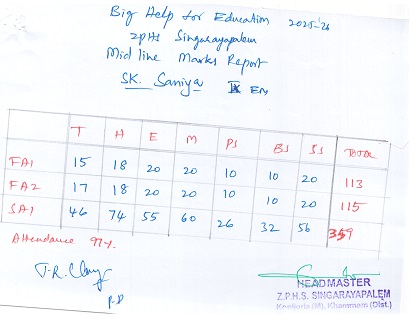 Big Help for Education 2025-26
ZPHS Singarayapalem
Mid line Marks Report
SK. Saniya IX Em
T H E M PS BS SS TOTAL
FA1 15 18 20 20 10 10 20 113
FA2 17 18 20 20 10 10 20 115
SA1 46 74 55 60 26 32 56
Attendance 97%
P.D
HEADMASTER
Z.P.H.S. SINGARAYAPALEM
(M), Khammam (Dist.)